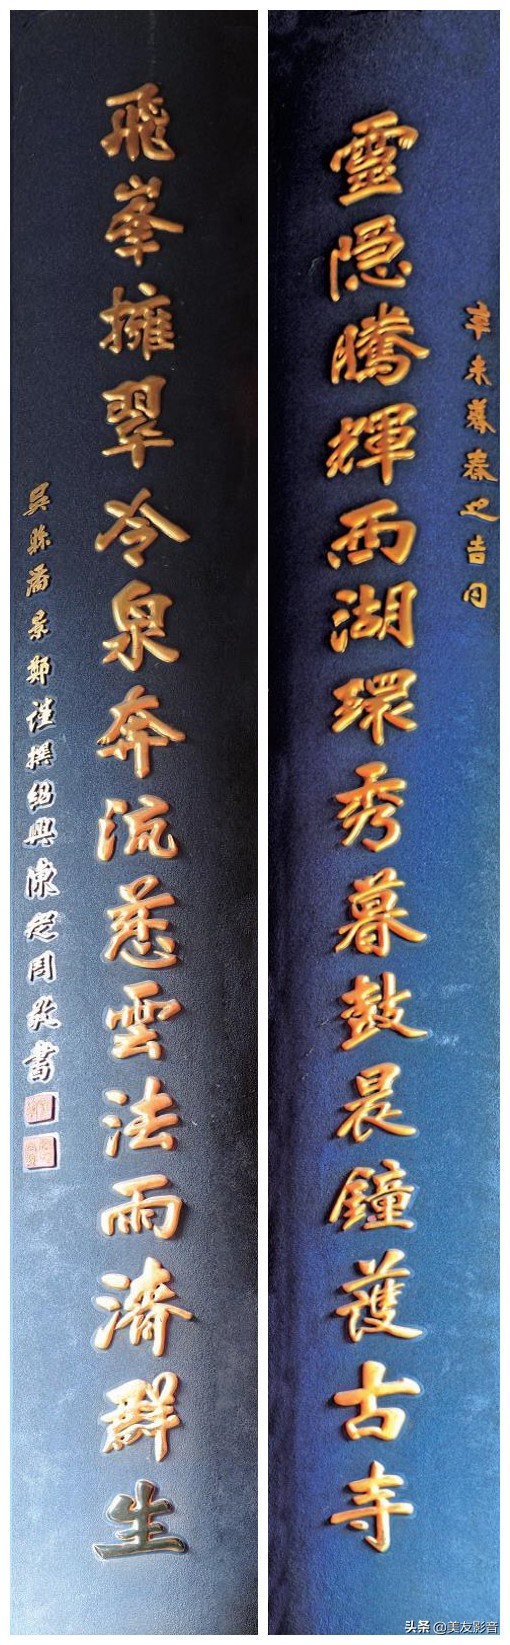 辛未暮春之吉日
靈隐騰輝西湖環秀暮鼓晨鐘護古寺
飛峯擁翠冷泉奔流慈雲法雨濟群生
吳縣潘景鄭謹撰紹興陳從周敬書
头条 @美友影音